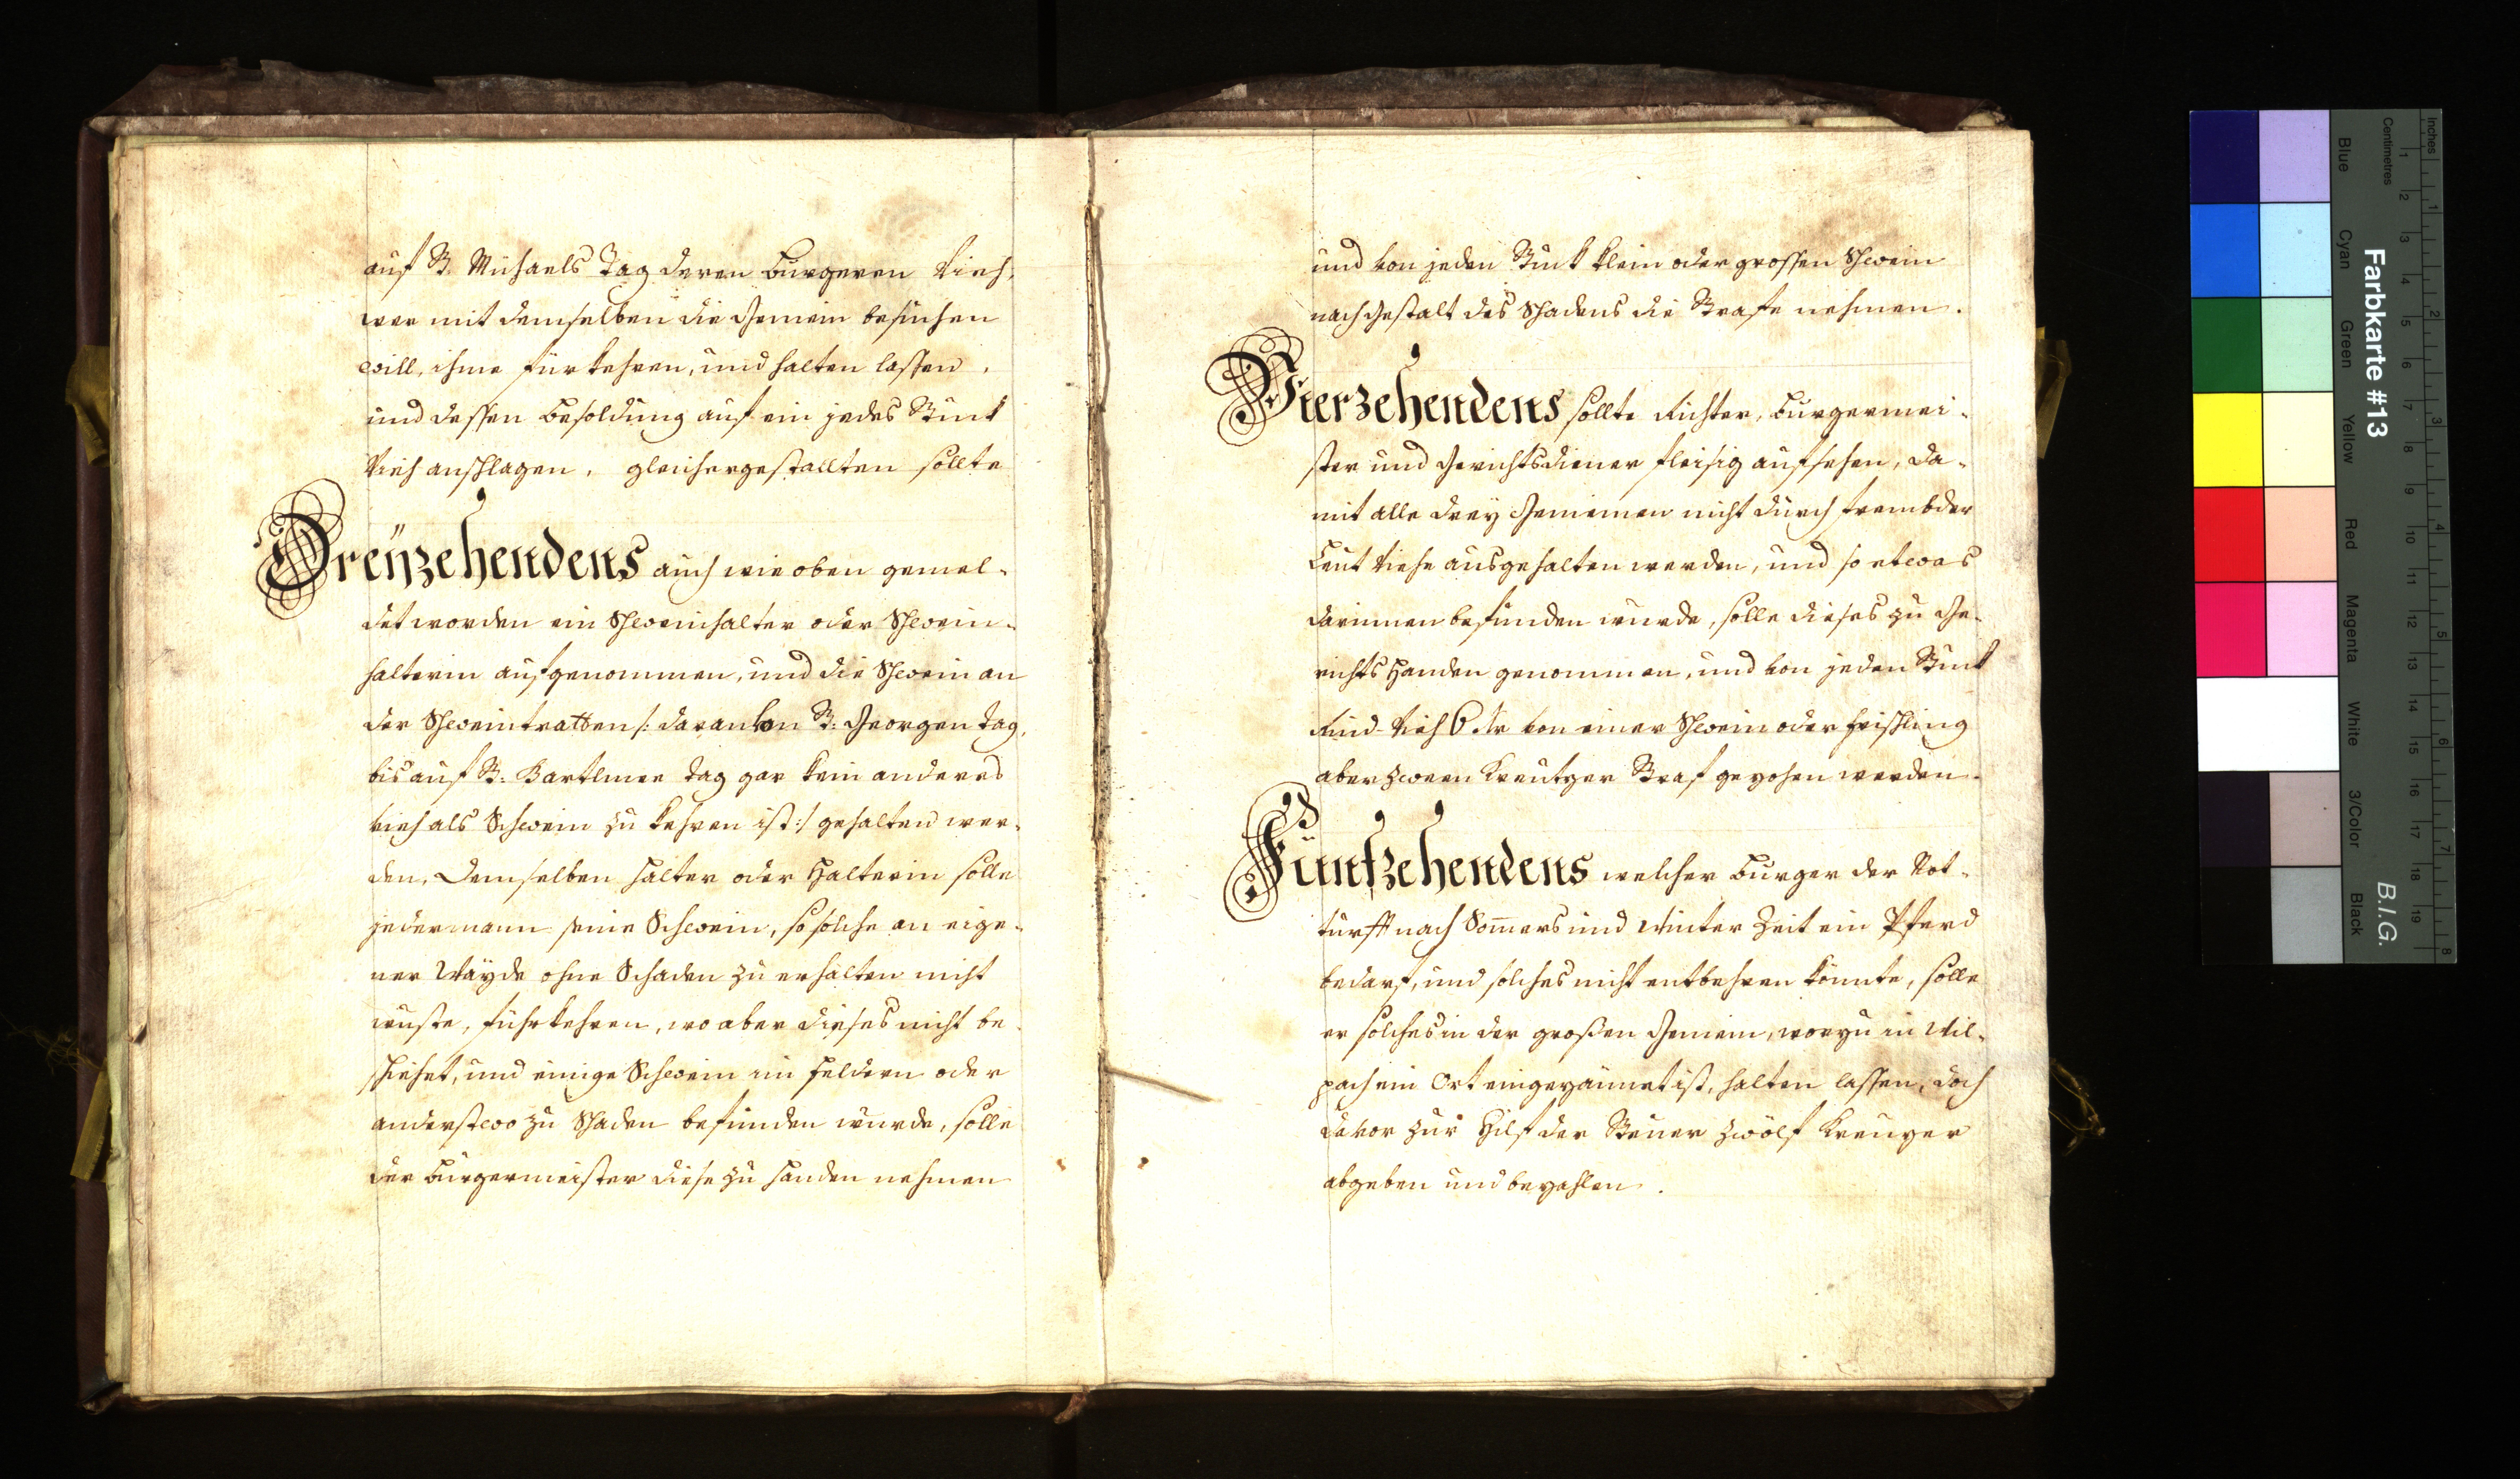 auf St. Michaels Tag deren Burgeren Vieh,
wer mit demselben die Gemein besuchen
will, ihme fürkehren, und halten lassen,
und dessen Besoldung auf ein jedes Stuck
Vieh anschlagen, gleichergestallten sollte
Dreÿzehendens auch wie oben gemel-
det worden ein Schweinhalter oder Schwein-
halterin aufgenommen, und die Schwein an
der Schweintratten /: daran von St: Georgen tag,
bis auf St: Bartlmee tag gar kein anderes
vieh als Schwein zu kehren ist :/ gehalten wer-
den, Demselben halter oder Halterin solle
jedermann seine Schwein, so solche an eige-
ner Wayde ohne Schaden zu erhalten nicht
wuste, fuhrkehren, wo aber dieses nicht be
schiehet, und einige Schwein in feldern oder
anderstwo zu Schaden befunden wurde, solle
der Burgermeister diese zu handen nehmen
und von jeden Stuck klein oder grossen Schwein
nach Gestalt des Schadens die Strafe nehmen.
Vierzehendens sollte Richter, Burgermei-
ster und Gerichtsdiener fleisig aufsehen, da-
mit alle drey Gemeinen nicht durch frembder
Leut Viehe ausgehalten werden, und so etwas
darinnen befunden wurde, solle dieses zu Ge-
richts Handen genommen, und von jeden Stuck
Rind-Vieh 6 kr von einer Schwein oder frischling
aber zween Kreutzer Straf gezohen werden.
Fünfzehendens welcher Burger der Not-
turfft nach Somers und Winter Zeit ein Pferd
bedarf, und solches nicht entbehren könnte, solle
er solches in der großen Gemein, worzu in Wil-
pach ein Ort eingezäunet ist, halten lassen, doch
davor zur Hilf der Steuer zwölf Kreuzer
abgeben und bezahlen.
Farbkarte #13
B.I.G.
Inches
Centimetres
Blue
Cyan
Green
Yellow
Red
Magenta
White
3/Color
Black
1
2
3
4
5
6
7
8
9
10
11
12
13
14
15
16
17
18
19
1
2
3
4
5
6
7
8